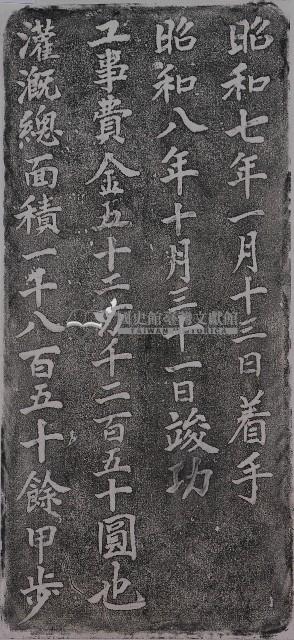 昭和七年一月十三日着手
昭和八年十月三十一日竣功
工事費金五十二万千二百五十圓也
灌漑總面積一千八百五十餘甲步
國史館臺灣文獻館
TAIWAN HISTORICA